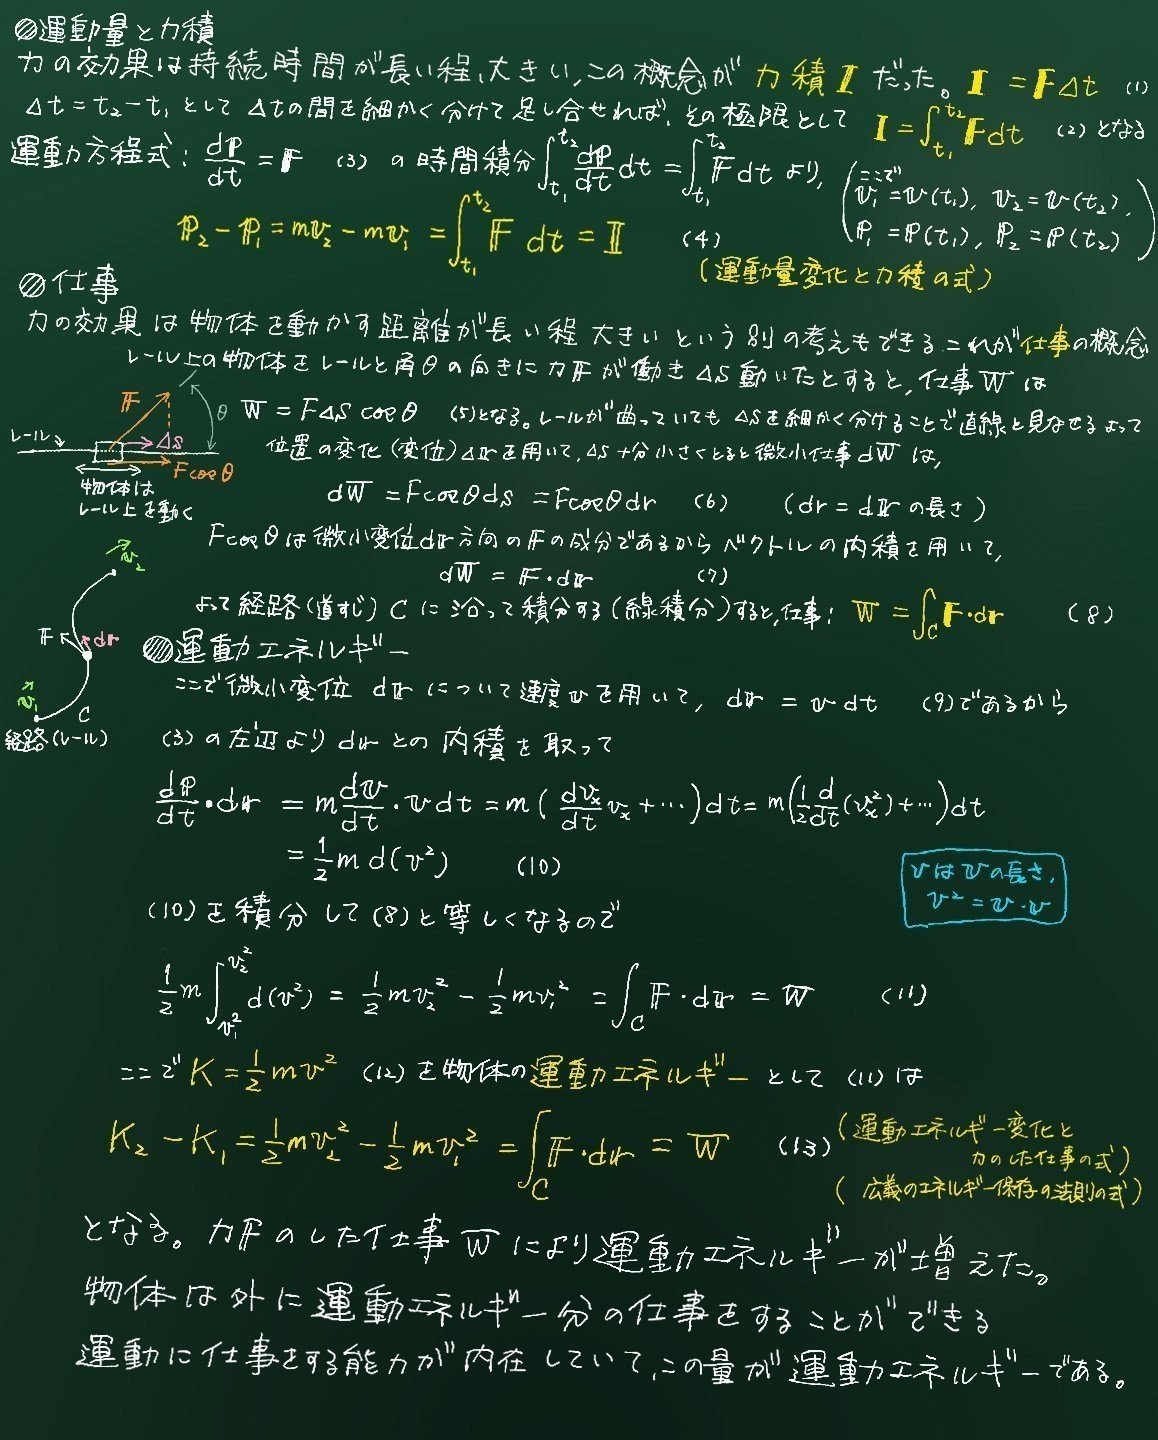 ◎運動量と力積
力の効果は持続時間が長い程、大きい、この概念が 力積 𝕀 だった。 𝕀 = 𝔽Δt (1)
Δt = t₂ − t₁ として Δtの間を細かく分けて足し合せれば、その極限として 𝕀 = ∫_{t₁}^{t₂} 𝔽dt (2) となる
運動方程式: dℙ/dt = 𝔽 (3) の時間積分 ∫_{t₁}^{t₂} dℙ/dt dt = ∫_{t₁}^{t₂} 𝔽dt より,
(ここで
𝕧₁ = 𝕧(t₁), 𝕧₂ = 𝕧(t₂),
ℙ₁ = ℙ(t₁), ℙ₂ = ℙ(t₂))
ℙ₂ − ℙ₁ = m𝕧₂ − m𝕧₁ = ∫_{t₁}^{t₂} 𝔽 dt = 𝕀 (4)
(運動量変化と力積の式)
◎仕事
力の効果は物体を動かす距離が長い程 大きい という別の考えもできる これが仕事の概念
レール上の物体をレールと角θの向きに力𝔽が働き ΔS動いたとすると, 仕事Wは
W = FΔS cosθ (5)となる。レールが曲っていても ΔSを細かく分けることで直線と見なせる よって
位置の変化(変位)Δ𝕣を用いて, ΔS十分小さくとると微小仕事dWは,
dW = Fcosθds = Fcosθdr (6) (dr = d𝕣の長さ)
Fcosθは微小変位d𝕣方向の𝔽の成分であるからベクトルの内積を用いて,
dW = 𝔽·d𝕣 (7)
よって経路(道すじ) C に沿って積分する(線積分)すると, 仕事: W = ∫_C 𝔽·d𝕣 (8)
𝔽
θ
レール
ΔS
Fcosθ
物体は
レール上を動く
𝕧₂
𝔽
d𝕣
𝕧₁
C
経路(レール)
◎運動エネルギー
ここで微小変位 d𝕣 について速度𝕧を用いて, d𝕣 = 𝕧dt (9)であるから
(3)の左辺より d𝕣 との内積を取って
dℙ/dt·d𝕣 = m d𝕧/dt·𝕧dt = m(dvₓ/dt vₓ + ⋯)dt = m(1/2 d/dt(vₓ²) + ⋯)dt
= 1/2 m d(v²) (10)
vは𝕧の長さ,
v² = 𝕧·𝕧
(10)を積分して(8)と等しくなるので
1/2 m ∫_{v₁²}^{v₂²} d(v²) = 1/2 mv₂² − 1/2 mv₁² = ∫_C 𝔽·d𝕣 = W (11)
ここで K = 1/2 mv² (12)を物体の運動エネルギーとして (11)は
K₂ − K₁ = 1/2 mv₂² − 1/2 mv₁² = ∫_C 𝔽·d𝕣 = W (13)
(運動エネルギー変化と
力のした仕事の式)
(広義のエネルギー保存の法則の式)
となる。力𝔽のした仕事Wにより運動エネルギーが増えた。
物体は外に運動エネルギー分の仕事をすることができる
運動に仕事をする能力が内在していて、この量が運動エネルギーである。